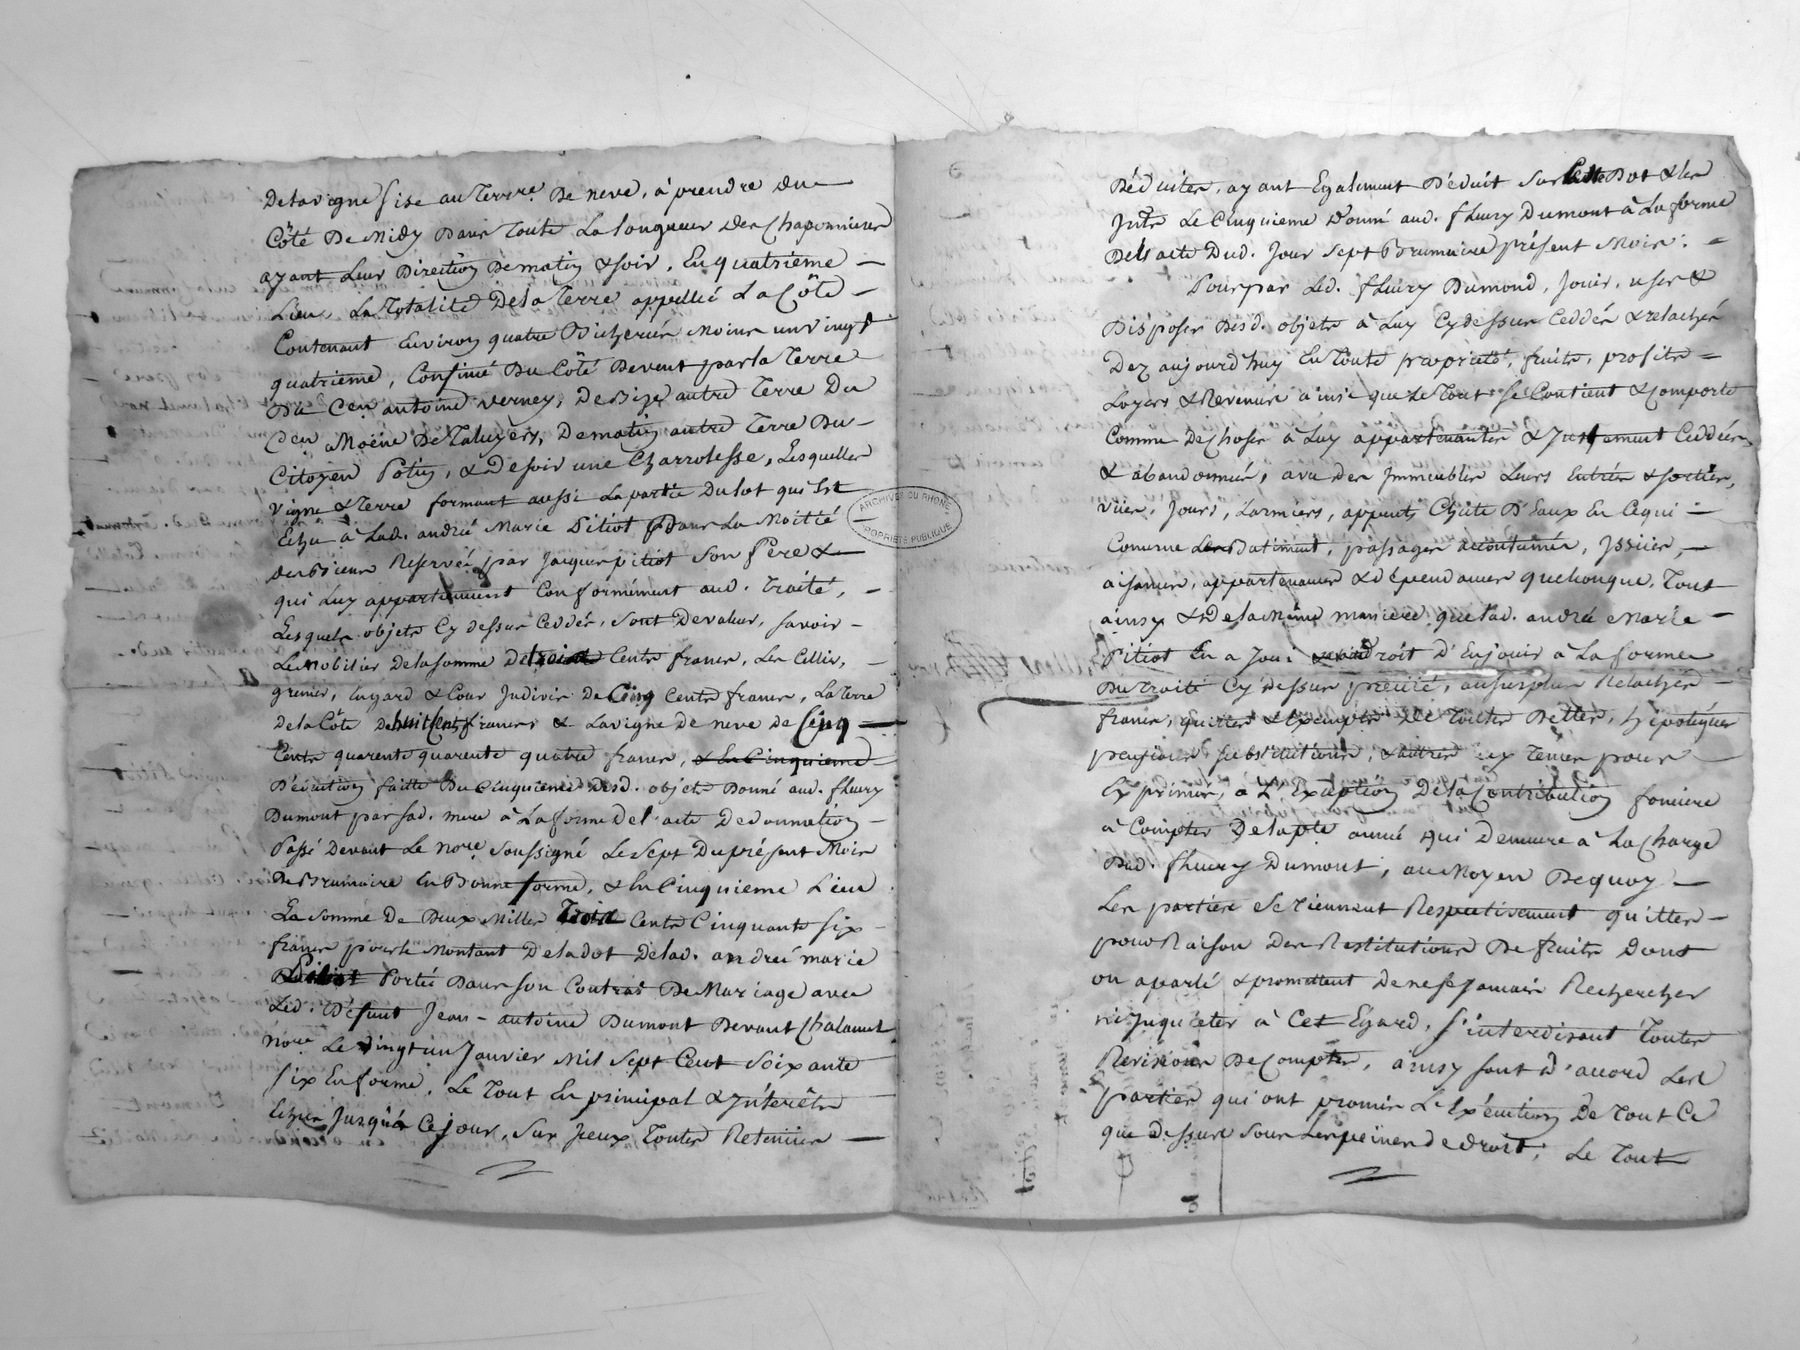 De la vigne sise au Terre. De neve, à prendre du
Côté De Midy Dans Toute La longueur Des Chaponnieres
ayant Leur Direction De matin & soir, En quatrieme
Lieu, La Totalité De la Terre appellée La Côte
Contenant Environ quatre Bicherées Moins un vingt
quatrieme, Confiné Du Côté De vent par la Terre
Du Cen antoine verney, De Bize autre Terre Du
Cen Moëne De Taluyers, De matin autre Terre Du
Citoyen Potin, & De soir une Charrolesse, Lesquelles
vigne & Terre formant aussi La partie Du lot qui Est
Echu à Lad. andrée Marie Pitiot Dans La Moitié
des Biens Reservés par Jacques pitiot Son Pere &
qui Luy appartiennent Conformément aud. Traité,
Lesquels objets Cy dessus Ceddés, sont De valeur, savoir
Le Mobilier De la somme De trois Cents francs, Les Cellier,
grenier, Engard & Cour Indivis De Cinq Cents francs, La Terre
De la Côte De huit Cents francs & La vigne De neve De Cinq
Cents quarente quarente quatre francs, & En Cinquieme
Déduction faitte Du Cinquieme Desd. objets Donné aud. fleury
Dumont par sad. mere à La forme De l'acte De donnation
Passé Devant Le nore. soussigné Le sept Du présent Mois
De Brumaire En Bonne forme, & En Cinquieme Lieu
La somme De Deux Milles Trois Cents Cinquante six
francs pour le Montant De la dot De lad. andrée marie
Pitiot Portée Dans son Contrat De Mariage avec
Led. Défunt Jean-antoine Dumont Devant Chalamel
Nore. Le vingt un Janvier Mil sept Cent Soixante
six En forme, Le Tout En principal & Intérêts
Echus Jusqu'à Ce jour, sur Iceux Toutes Retenües
Déduites, ayant Egalement Déduit sur Cette Dot & les
Ints. Le Cinquieme Donné aud. fleury Dumont à La forme
De l'acte Dud. Jour sept Brumaire présent Mois.
Pour par Led. fleury Dumond, Jouir, user &
Disposer Desd. objets à Luy Cy dessus Ceddés & relachés
Dez aujourd'huy En Toute propriété, fruits, profits
Loyers & Revenus ainsi que Le Tout se Contient & Comporte
Comme De Choses à Luy appartenantes & Justement Ceddées
& abandonnées, avec des Immeubles Leurs Entrées & sorties,
vües, Jours, Larmiers, appents Chûte D'Eaux En Ce qui
Concerne Les Batiments, passages accoutumés, Issües,
aisances, appartenances & dépendances quelconque, Tout
ainsy & De la Même maniere que lad. andrée Marie
Pitiot En a Joui Droit D'En jouir à La forme
Du Traité Cy dessus précité, au surplus Relachés
francs, quittes & Exempts De Toutes Dettes, hypotéques
pensions substitutions, & autres
Ex primés, à L'Exception De la Contribution fonciere
à Compter De la pte. année qui Demeure à La Charge
Dud. fleury Dumont, au Moyen De quoy
Les parties Se Tiennent Respectivement quittes
pour Raison Des Restitutions De fruits Dont
on a parlé & promettent De ne se Jamais Rechercher
ni Inquieter à Cet Egard, S'interdisant Toutes
Revisions De Comptes, ainsy sont D'accord Les
parties qui ont promis L'Exécution De Tout Ce
que Dessus sous Les peines de droit, Le Tout
ARCHIVES DU RHONE
PROPRIÉTÉ PUBLIQUE